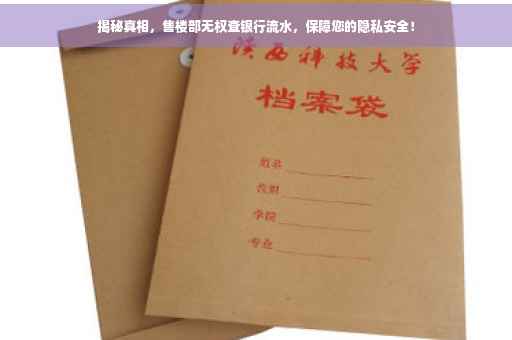 揭秘真相，售楼部无权查银行流水，保障您的隐私安全！
陕西科技大学
档案袋
姓名
学院
专业